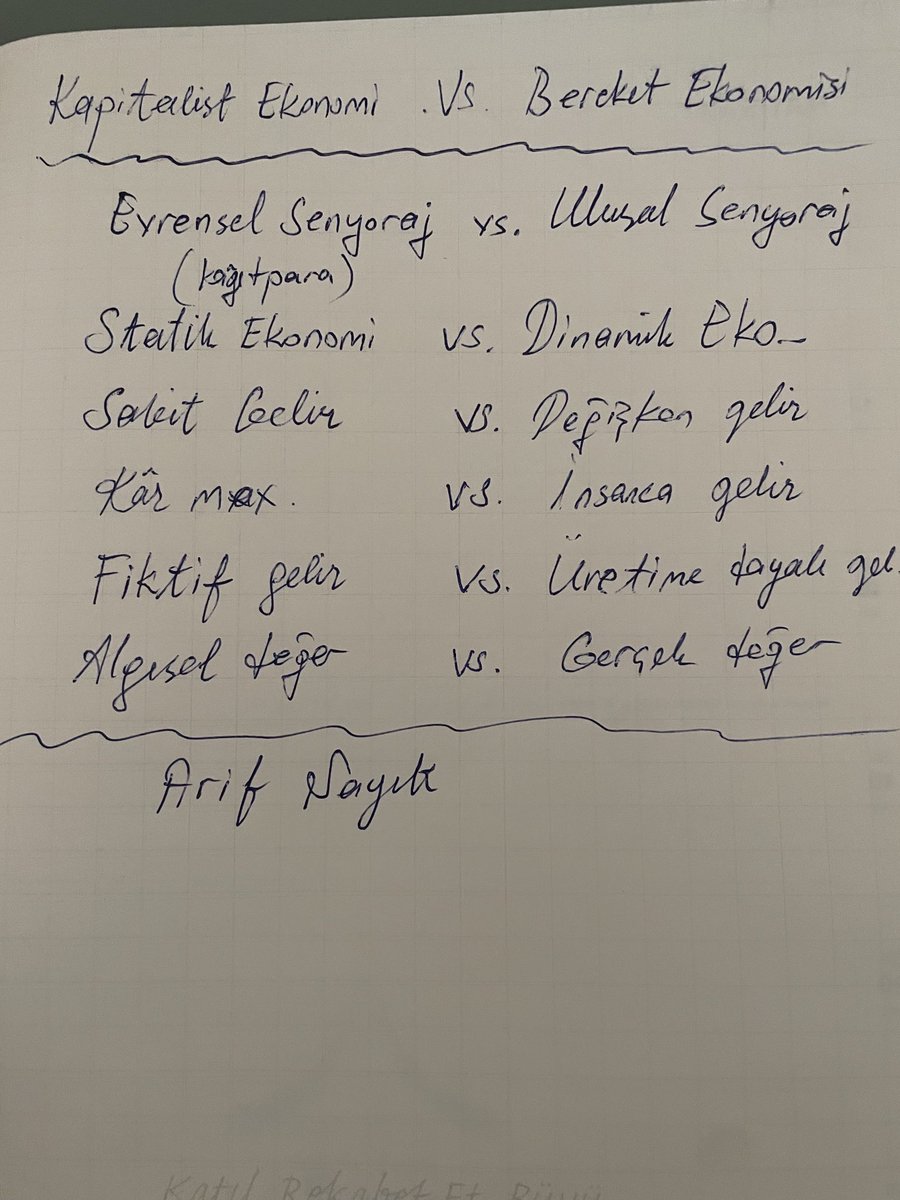 Kapitalist Ekonomi .Vs. Bereket Ekonomisi
Evrensel Senyoraj vs. Ulusal Senyoraj
(kağıtpara)
Statik Ekonomi vs. Dinamik Eko_
Sabit Gelir vs. Değişken gelir
Kâr max. vs. İnsanca gelir
Fiktif gelir vs. Üretime dayalı gel.
Algısal değer vs. Gerçek değer
Arif Nayık
Katıl Rekabet Et Büyü